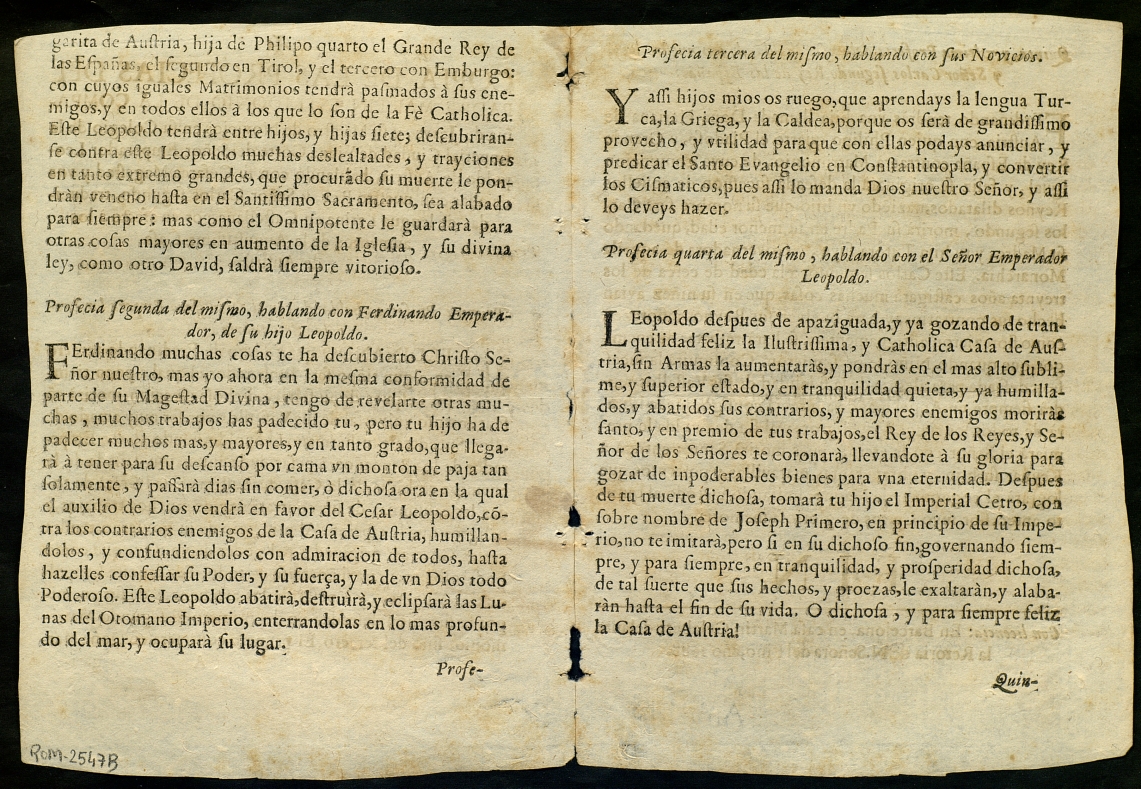 garita de Auſtria, hija de Philipo quarto el Grande Rey de
las Eſpañas, el ſegundo en Tirol, y el tercero con Emburgo:
con cuyos iguales Matrimonios tendrà paſmados à sus ene-
migos, y en todos ellos à los que lo ſon de la Fè Catholica.
Eſte Leopoldo tendrà entre hijos, y hijas ſiete; deſcubriran-
ſe contra eſte Leopoldo muchas deslealtades, y trayciones
en tanto extremo grandes, que procurãdo ſu muerte le pon-
dràn veneno haſta en el Santiſſimo Sacramento, ſea alabado
para ſiempre: mas como el Omnipotente le guardarà para
otras coſas mayores en aumento de la Igleſia, y ſu divina
ley, como otro David, ſaldrà ſiempre vitorioſo.
Profecia ſegunda del miſmo, hablando con Ferdinando Empera-
dor, de ſu hijo Leopoldo.
FErdinando muchas coſas te ha deſcubierto Chriſto Se-
ñor nueſtro, mas yo ahora en la meſma conformidad de
parte de ſu Mageſtad Divina, tengo de revelarte otras mu-
chas, muchos trabajos has padecido tu, pero tu hijo ha de
padecer muchos mas, y mayores, y en tanto grado, que llega-
rà à tener para ſu deſcanſo por cama vn monton de paja tan
ſolamente, y paſſarà dias ſin comer, ò dichoſa ora en la qual
el auxilio de Dios vendrà en favor del Ceſar Leopoldo, cõ-
tra los contrarios enemigos de la Caſa de Auſtria, humillan-
dolos, y confundiendolos con admiracion de todos, haſta
hazelles confeſſar ſu Poder, y ſu fuerça, y la de vn Dios todo
Poderoſo. Eſte Leopoldo abatirà, deſtruirà, y eclipſarà las Lu-
nas del Otomano Imperio, enterrandolas en lo mas profun-
do del mar, y ocuparà ſu lugar.
Profe-
ROM-2547B
Profecia tercera del miſmo, hablando con ſus Novicios.
Y aſſi hijos mios os ruego, que aprendays la lengua Tur-
ca, la Griega, y la Caldea, porque os ſerà de grandiſſimo
provecho, y vtilidad para que con ellas podays anunciar, y
predicar el Santo Evangelio en Conſtantinopla, y convertir
los Ciſmaticos, pues aſſi lo manda Dios nueſtro Señor, y aſſi
lo deveys hazer.
Profecia quarta del miſmo, hablando con el Señor Emperador
Leopoldo.
LEopoldo deſpues de apaziguada, y ya gozando de tran-
quilidad feliz la Iluſtriſſima, y Catholica Caſa de Auſ-
tria, ſin Armas la aumentaràs, y pondràs en el mas alto ſubli-
me, y ſuperior eſtado, y en tranquilidad quieta, y ya humilla-
dos, y abatidos ſus contrarios, y mayores enemigos moriràs
ſanto, y en premio de tus trabajos, el Rey de los Reyes, y Se-
ñor de los Señores te coronarà, llevandote à ſu gloria para
gozar de inpoderables bienes para vna eternidad. Deſpues
de tu muerte dichoſa, tomarà tu hijo el Imperial Cetro, con
ſobre nombre de Joſeph Primero, en principio de ſu Impe-
rio, no te imitarà, pero ſi en ſu dichoſo fin, governando ſiem-
pre, y para ſiempre, en tranquilidad, y proſperidad dichoſa,
de tal ſuerte que ſus hechos, y proezas, le exaltaràn, y alaba-
ràn haſta el fin de ſu vida. O dichoſa, y para ſiempre feliz
la Caſa de Auſtria!
Quin-